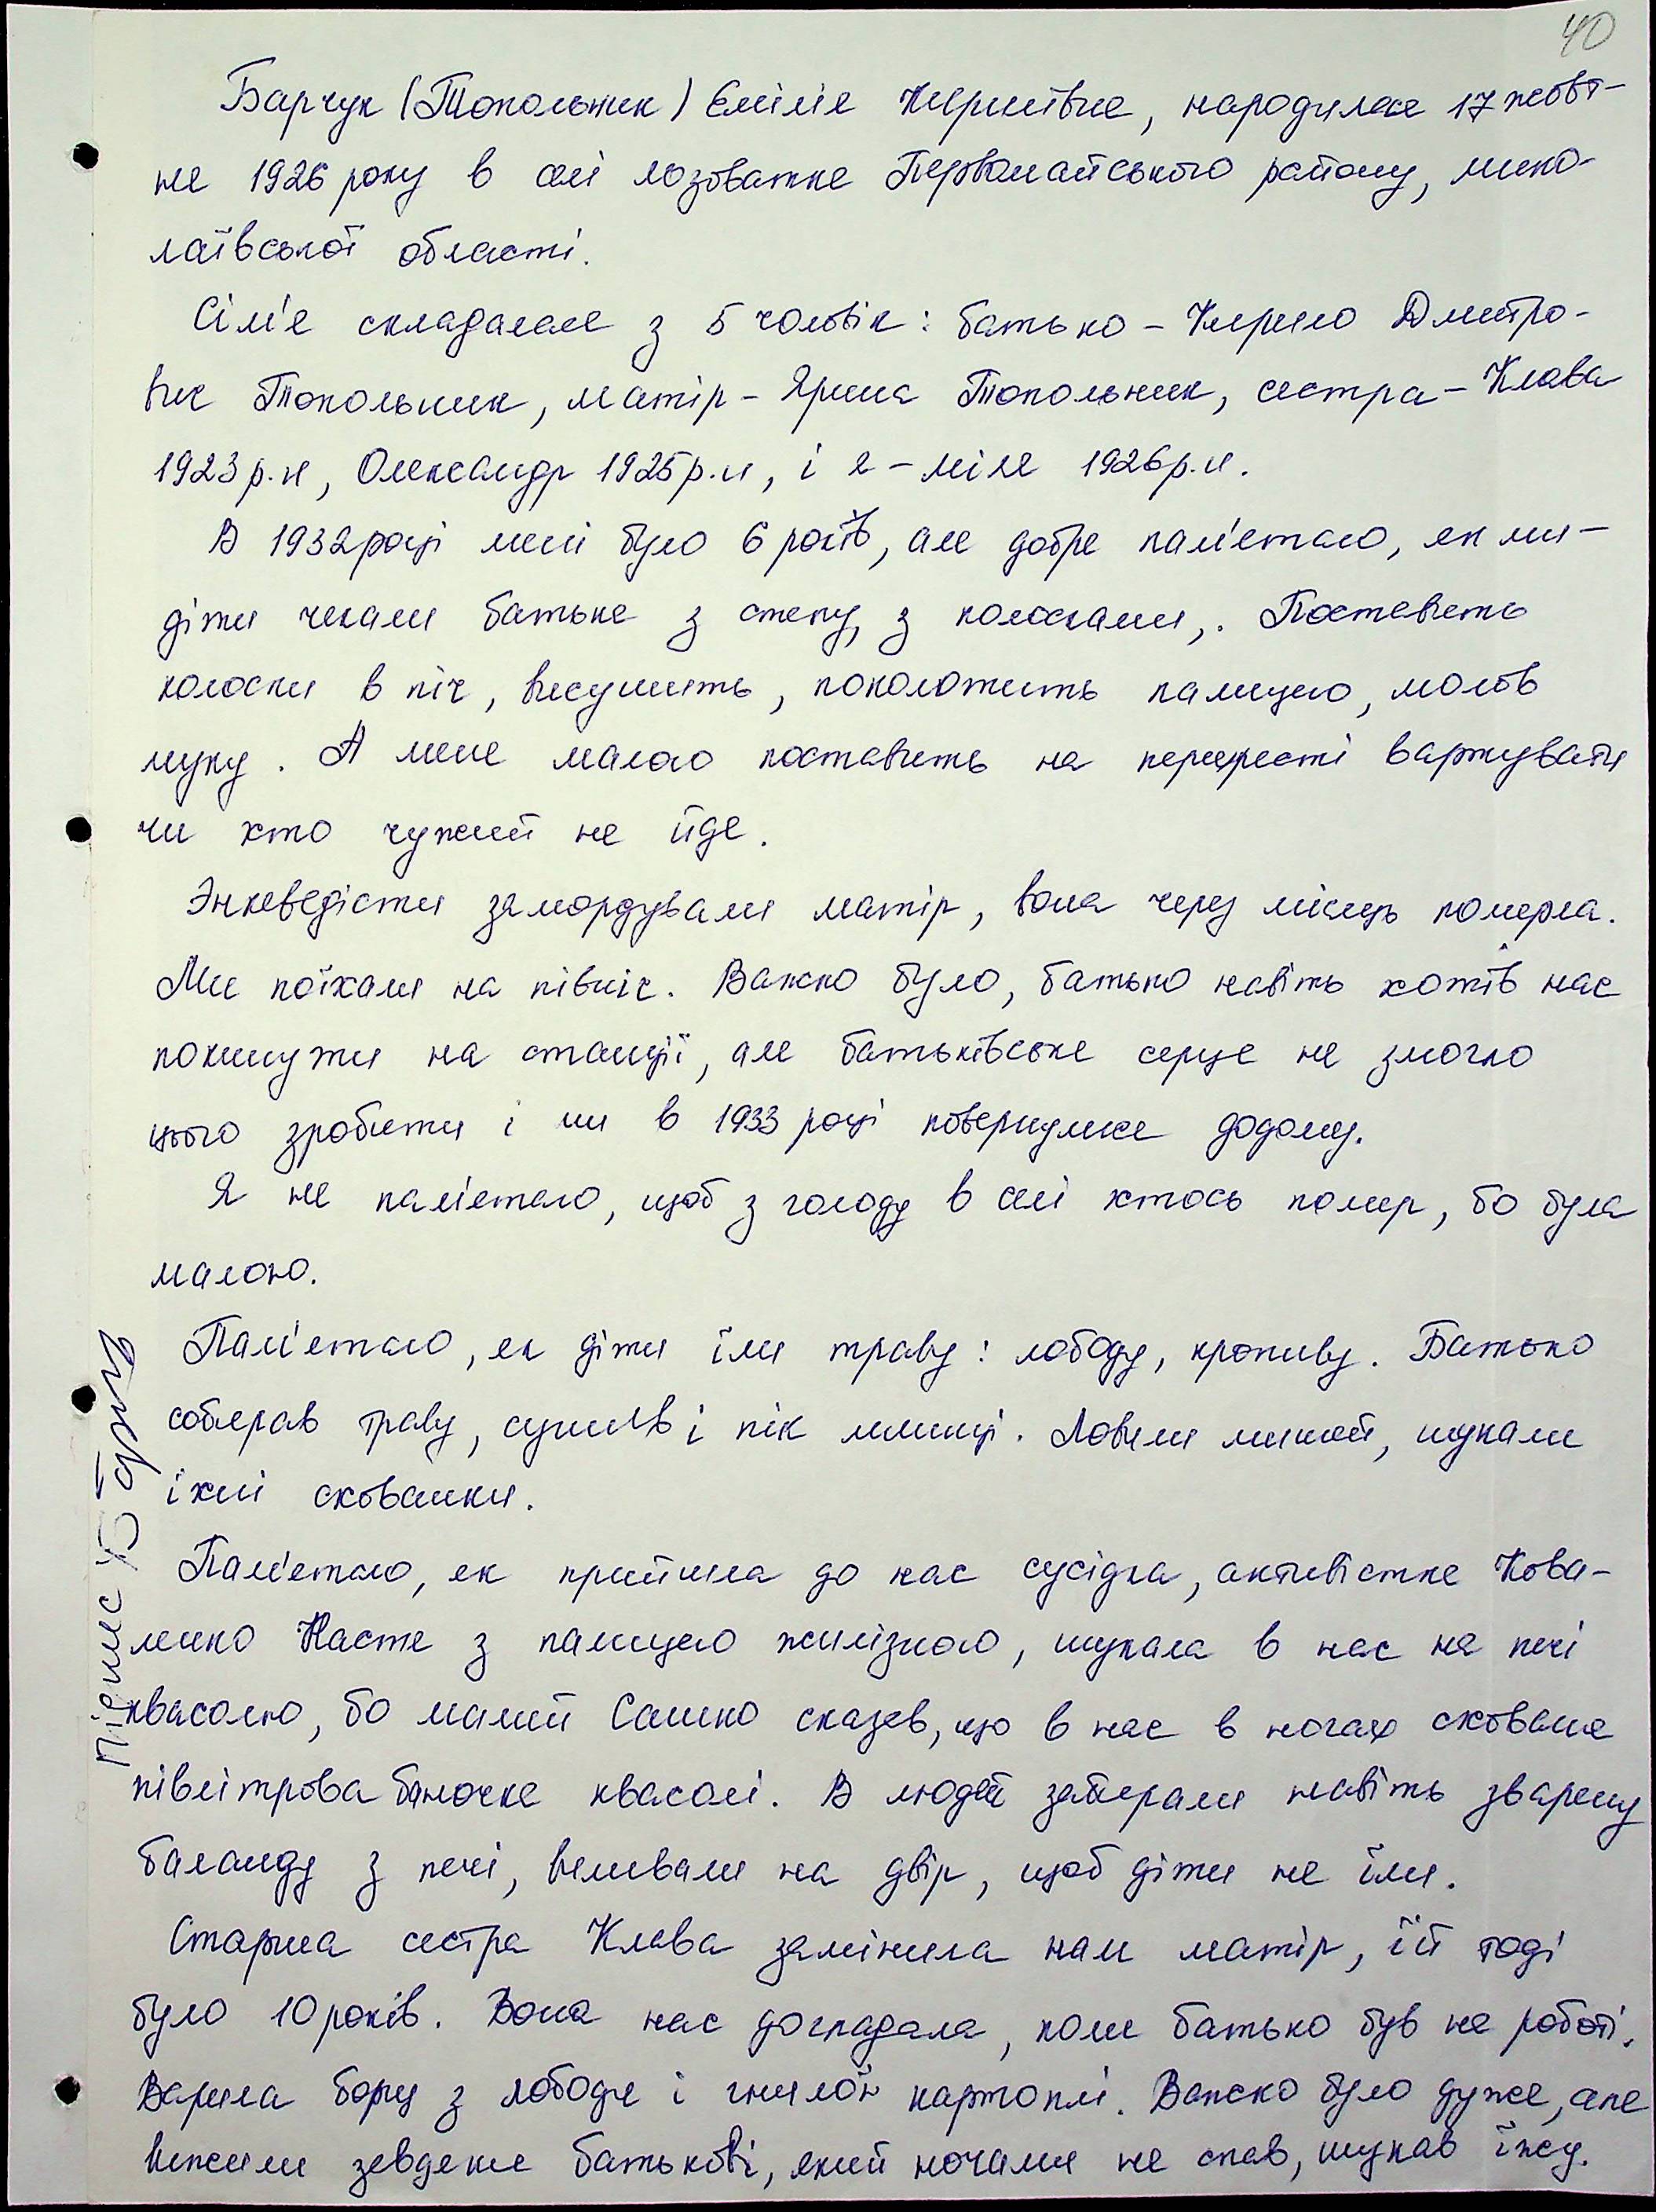 40
Барчук (Топольник) Емілія Кирилівна, народилася 17 жовт-
ня 1926 року в селі Лозоватка Первомайського району, мико-
лаївської області.
Сім'я складалася з 5 чоловік: батько - Кирило Дмитро-
вич Топольник, матір - Ярина Топольник, сестра - Клава
1923 р.н, Олександр 1925 р.н, і я - Міля 1926 р.н.
В 1932 році мені було 6 років, але добре пам'ятаю, як ми -
діти чекали батька з степу, з колосками,. Поставить
колоски в піч, висушить, поколотить палицею, молов
муку. А мене малою поставить на перехресті вартувати
чи хто чужий не йде.
Энкеведісти замордували матір, вона через місяць померла.
Ми поїхали на північ. Важко було, батько навіть хотів нас
покинути на станції, але батьківське серце не змогло
цього зробити і ми в 1933 році повернулися додому.
Я не пам'ятаю, щоб з голоду в селі хтось помер, бо була
малою.
Пам'ятаю, як діти їли траву: лободу, кропиву. Батько
собирав траву, сушив і пік млинці. Ловили мишей, шукали
їхні схованки.
Пам'ятаю, як прийшла до нас сусідка, активістка Кова-
ленко Настя з палицею желізною, шукала в нас на печі
квасолю, бо малий Сашко сказав, що в нас в ногах схована
півлітрова баночка квасолі. В людей забирали навіть зварену
баланду з печі, виливали на двір, щоб діти не їли.
Старша сестра Клава замінила нам матір, їй тоді
було 10 років. Вона нас доглядала, коли батько був на роботі.
Варила борщ з лободи і гнилої картоплі. Важко було дуже, але
вижили завдяки батькові, який ночами не спав, шукав їжу.
Підпис